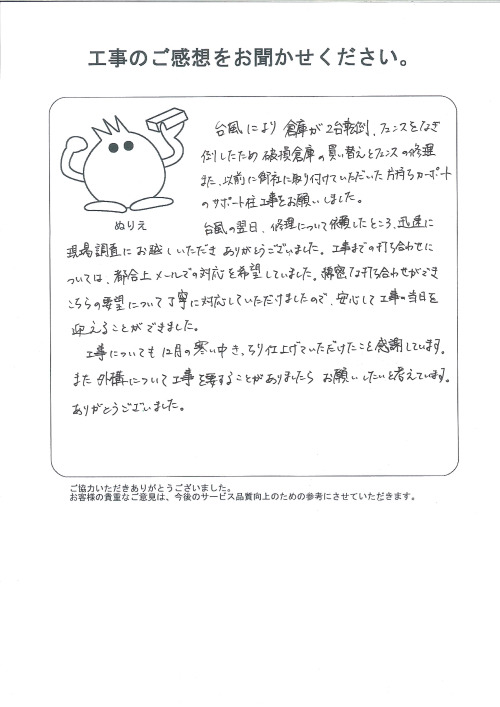 工事のご感想をお聞かせください。
台風により倉庫が2台転倒、フェンスをなぎ
倒したため破損倉庫の買い替えとフェンスの修理
また、以前に御社に取り付けていただいた片持ちカーポート
のサポート柱工事をお願いしました。
ぬりえ
台風の翌日、修理について依頼したところ、迅速に
現場調査にお越しいただきありがとうございました。工事までの打ち合わせに
ついては、都合上メールでの対応を希望していました。綿密な打ち合わせができ
こちらの要望について丁寧に対応していただけましたので、安心して工事の当日を
迎えることができました。
工事についても12月の寒い中きっちり仕上げていただけたこと感謝しています。
また外構について工事を要することがありましたらお願いしたいと考えています。
ありがとうございました。
ご協力いただきありがとうございました。
お客様の貴重なご意見は、今後のサービス品質向上のための参考にさせていただきます。